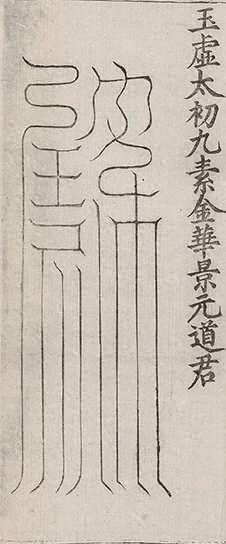 玉虛太初九素金華景元道君